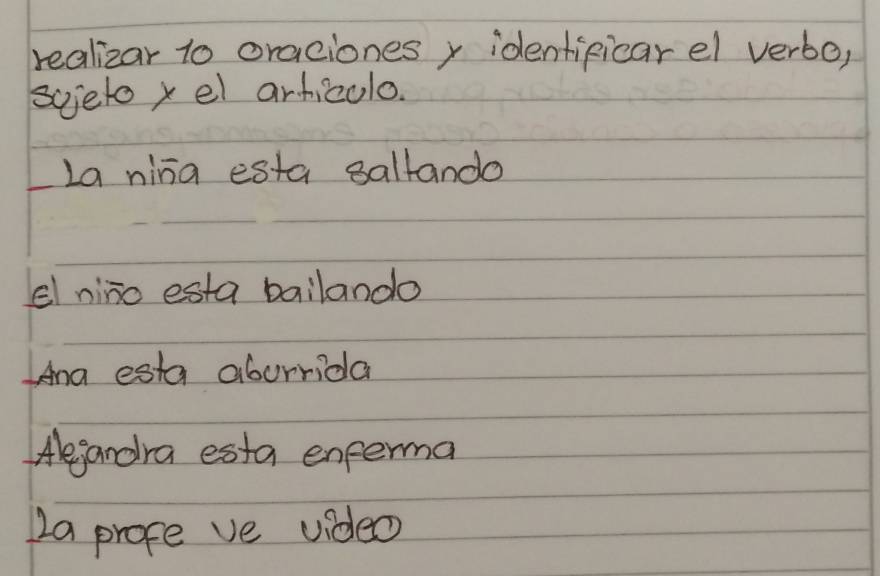 realizar 10 oraciones y identificar el verbo,
sujeto y el articulo.
- La niña esta saltando
- El niño esta bailando
- Ana esta aburrida
- Alejandra esta enferma
- La profe ve video